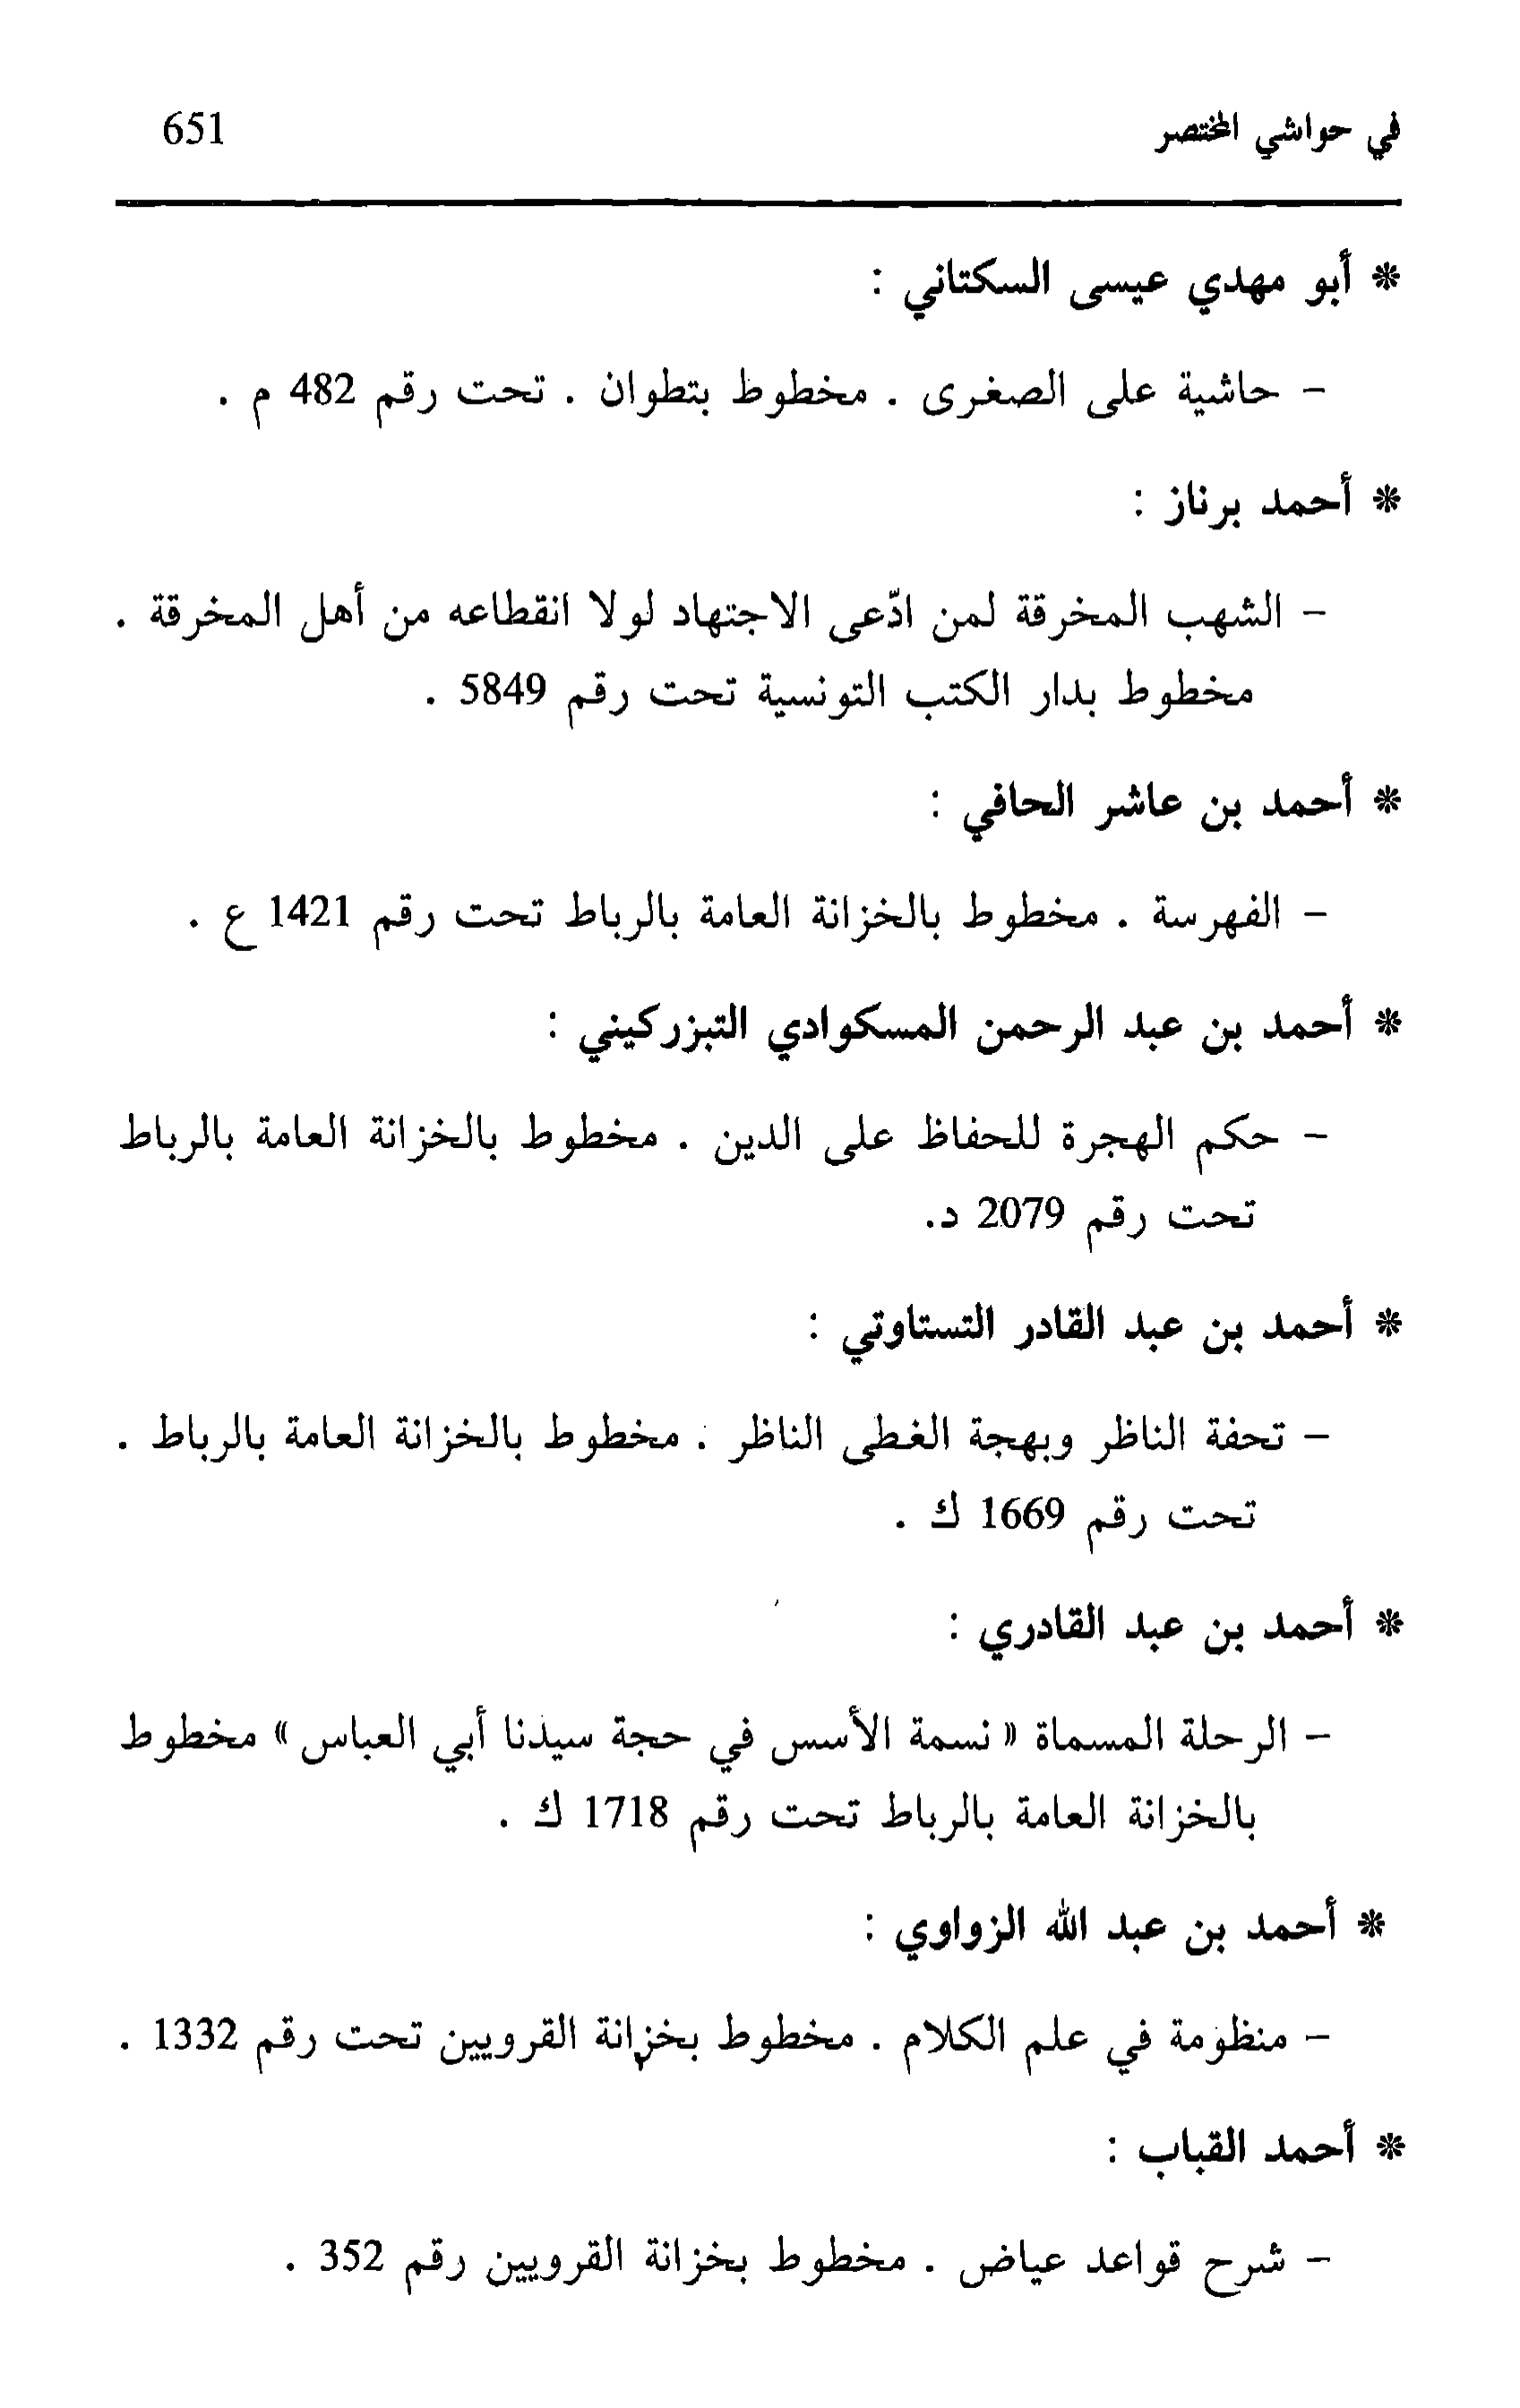 في حواشي المختصر 651
* أبو مهدي عيسى السكتاني :
- حاشية على الصغرى . مخطوط بتطوان . تحت رقم 482 م .
* أحمد برناز :
- الشهب المخرقة لمن ادّعى الاجتهاد لولا انقطاعه من أهل المخرقة .
مخطوط بدار الكتب التونسية تحت رقم 5849 .
* أحمد بن عاشر الحافي :
- الفهرسة . مخطوط بالخزانة العامة بالرباط تحت رقم 1421 ع .
* أحمد بن عبد الرحمن المسكوادي التبزركيني :
- حكم الهجرة للحفاظ على الدين . مخطوط بالخزانة العامة بالرباط
تحت رقم 2079 د.
* أحمد بن عبد القادر التستاوتي :
- تحفة الناظر وبهجة الغطى الناظر . مخطوط بالخزانة العامة بالرباط .
تحت رقم 1669 ك .
* أحمد بن عبد القادري :
- الرحلة المسماة « نسمة الأسس في حجة سيدنا أبي العباس » مخطوط
بالخزانة العامة بالرباط تحت رقم 1718 ك .
* أحمد بن عبد الله الزواوي :
- منظومة في علم الكلام . مخطوط بخزانة القرويين تحت رقم 1332 .
* أحمد القباب :
- شرح قواعد عياض . مخطوط بخزانة القرويين رقم 352 .